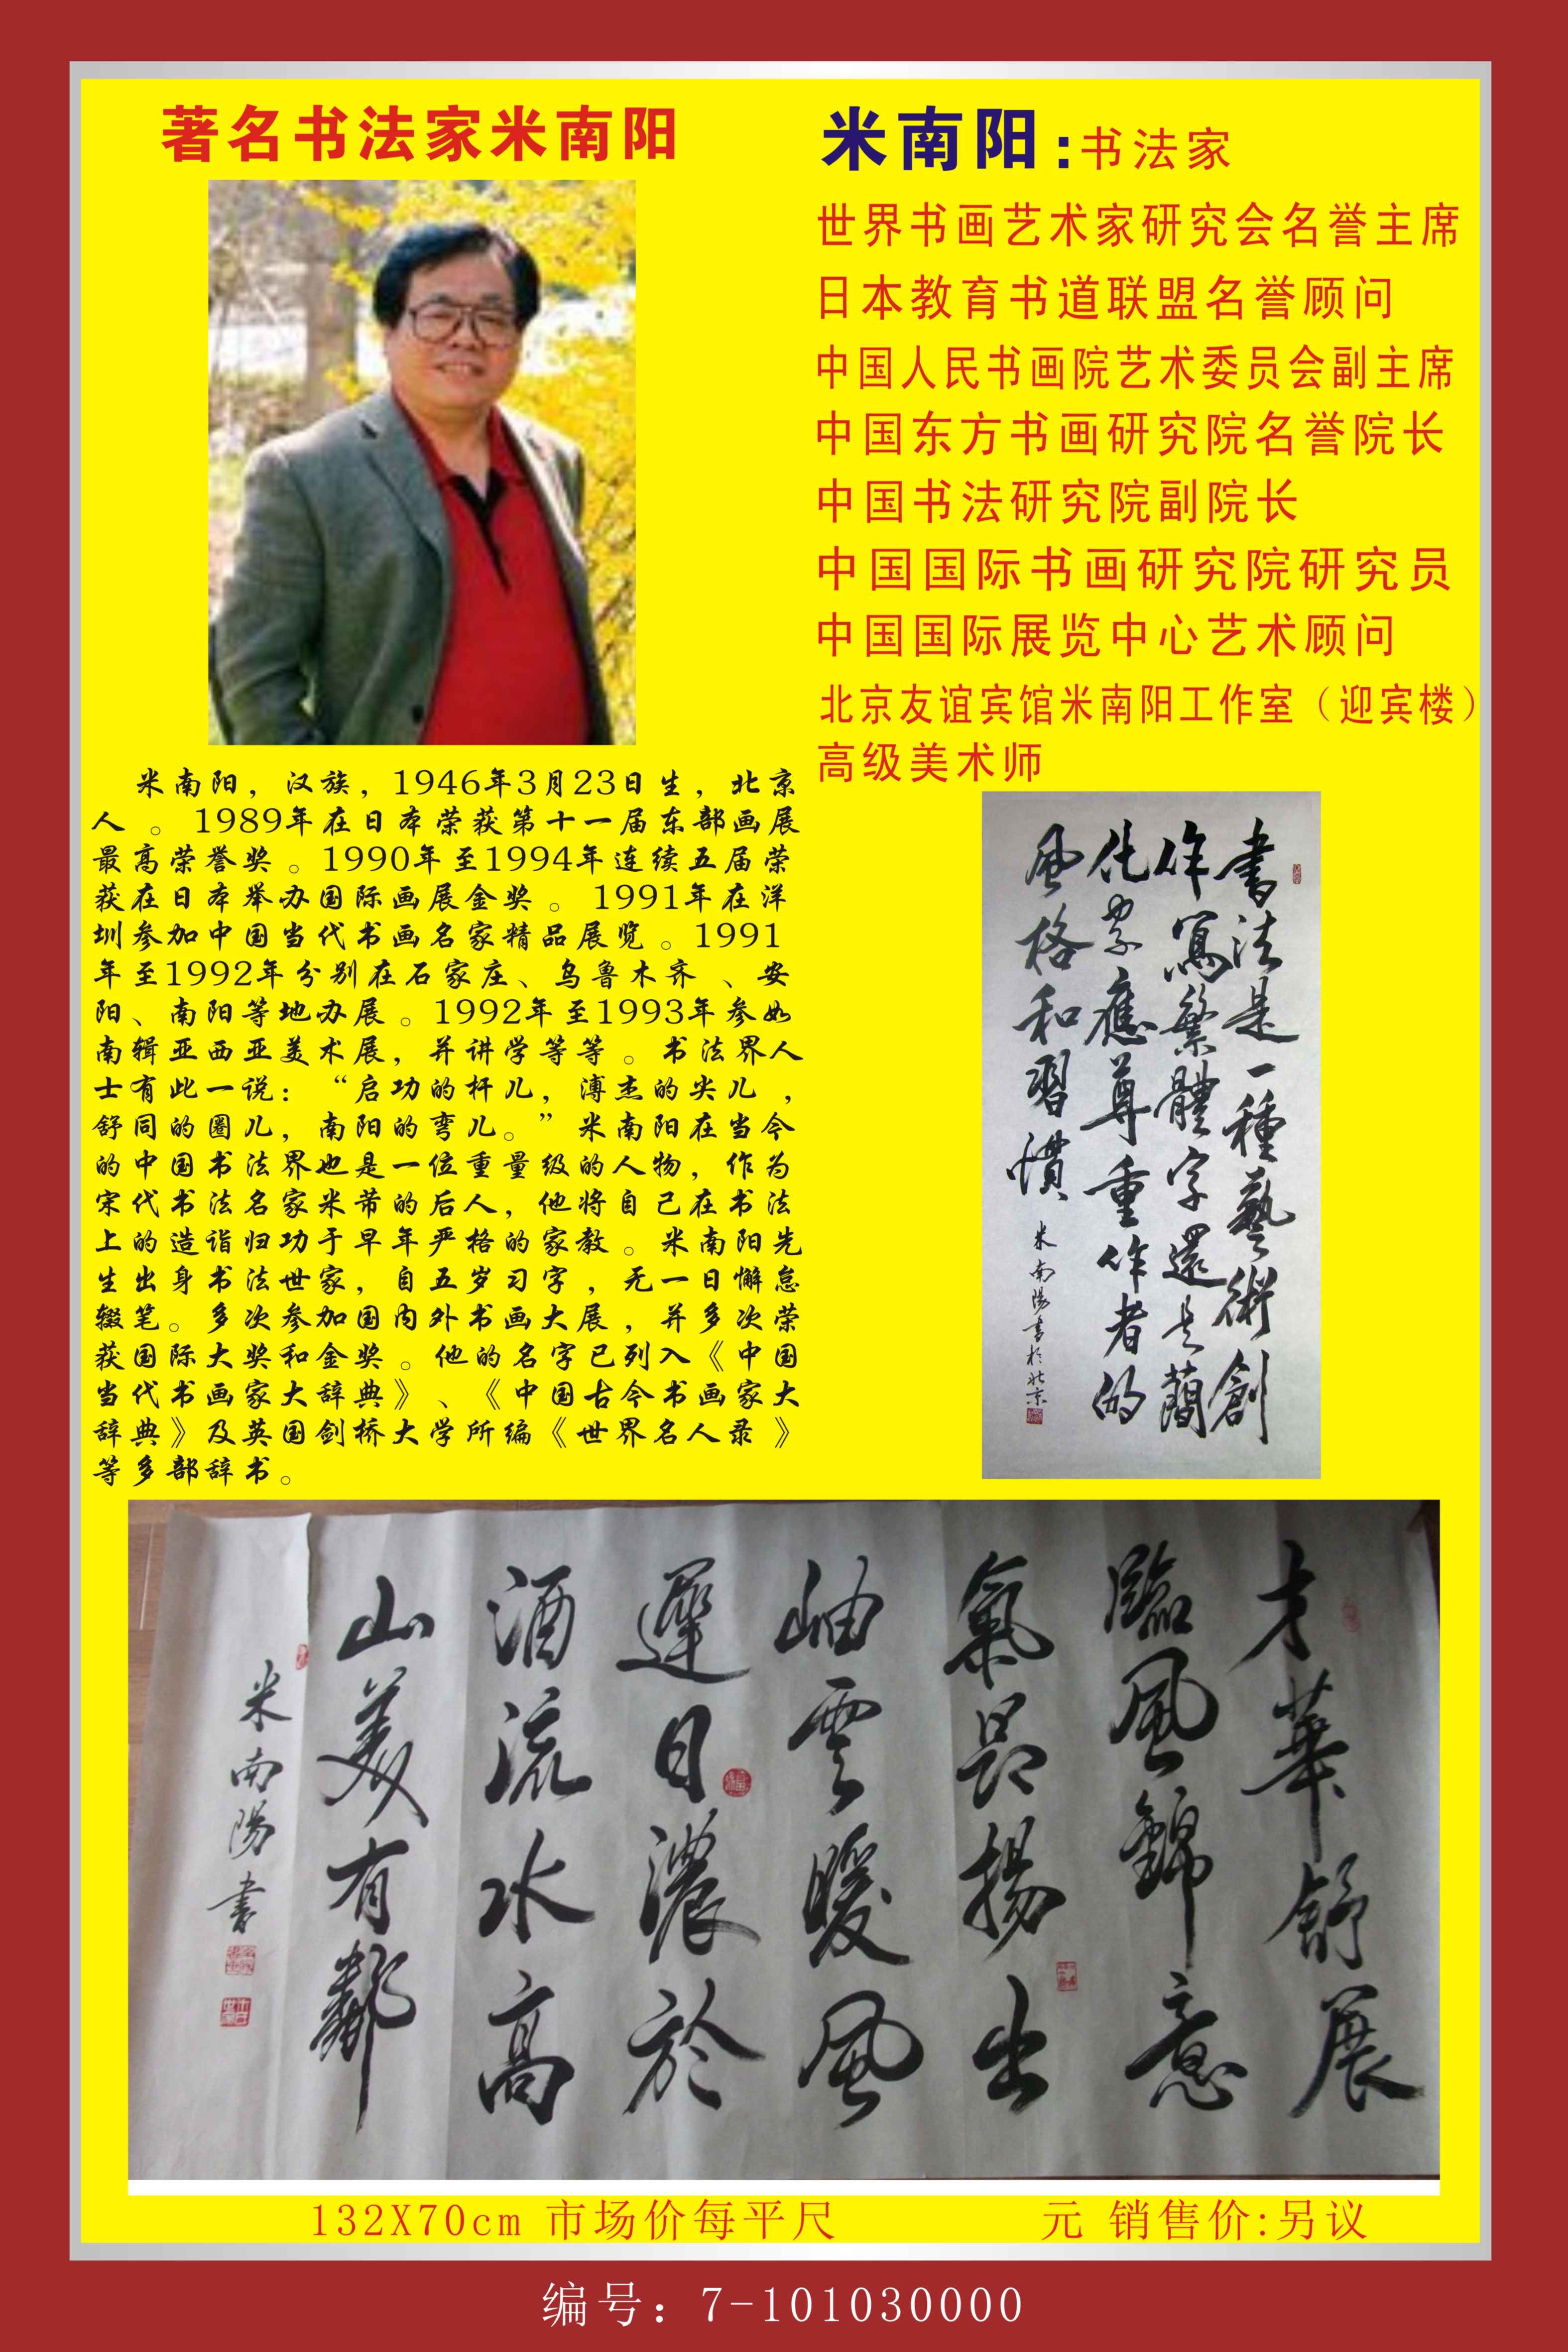 著名书法家米南阳
米南阳:书法家
世界书画艺术家研究会名誉主席
日本教育书道联盟名誉顾问
中国人民书画院艺术委员会副主席
中国东方书画研究院名誉院长
中国书法研究院副院长
中国国际书画研究院研究员
中国国际展览中心艺术顾问
北京友谊宾馆米南阳工作室（迎宾楼）
高级美术师
米南阳，汉族，1946年3月23日生，北京
人 。1989年在日本荣获第十一届东部画展
最高荣誉奖。1990年至1994年连续五届荣
获在日本举办国际画展金奖 。1991年在洋
圳参加中国当代书画名家精品展览。1991
年至1992年分别在石家庄、乌鲁木齐 、安
阳、南阳等地办展。1992年至1993年参如
南辑亚西亚美术展，并讲学等等。书法界人
士有此一说：“启功的杆儿，溥杰的尖儿 ，
舒同的圈儿，南阳的弯儿。”米南阳在当今
的中国书法界也是一位重量级的人物，作为
宋代书法名家米芾的后人，他将自己在书法
上的造诣归功于早年严格的家教。米南阳先
生出身书法世家，自五岁习字，无一日懈怠
辍笔。多次参加国内外书画大展，并多次荣
获国际大奖和金奖。他的名字已列入《中国
当代书画家大辞典》、《中国古今书画家大
辞典》及英国剑桥大学所编《世界名人录 》
等多部辞书。
書法是一種藝術創
作寫繁體字還是簡
化字應尊重作者的
風格和習慣
米南陽書於北京
才華舒展
臨風錦意
氣昂揚出
岫雲暖風
遲日濃於
酒流水高
山美有鄰
米南陽書
132X70cm 市场价每平尺 元 销售价:另议
编号：7-101030000